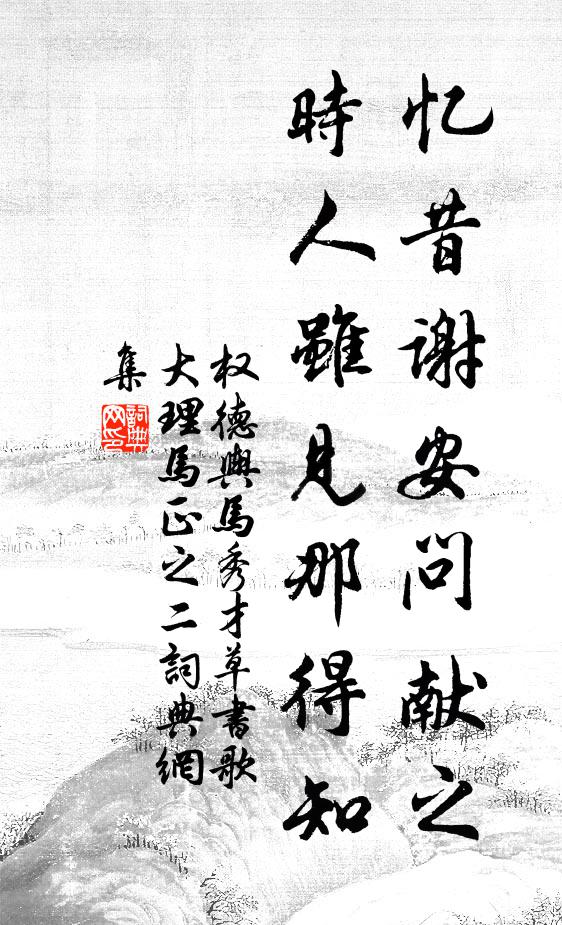 忆昔谢安问献之
時人雖見那得知
权德舆馬秀才草書歌
大理馬正之二詞典網
集
詞典网印